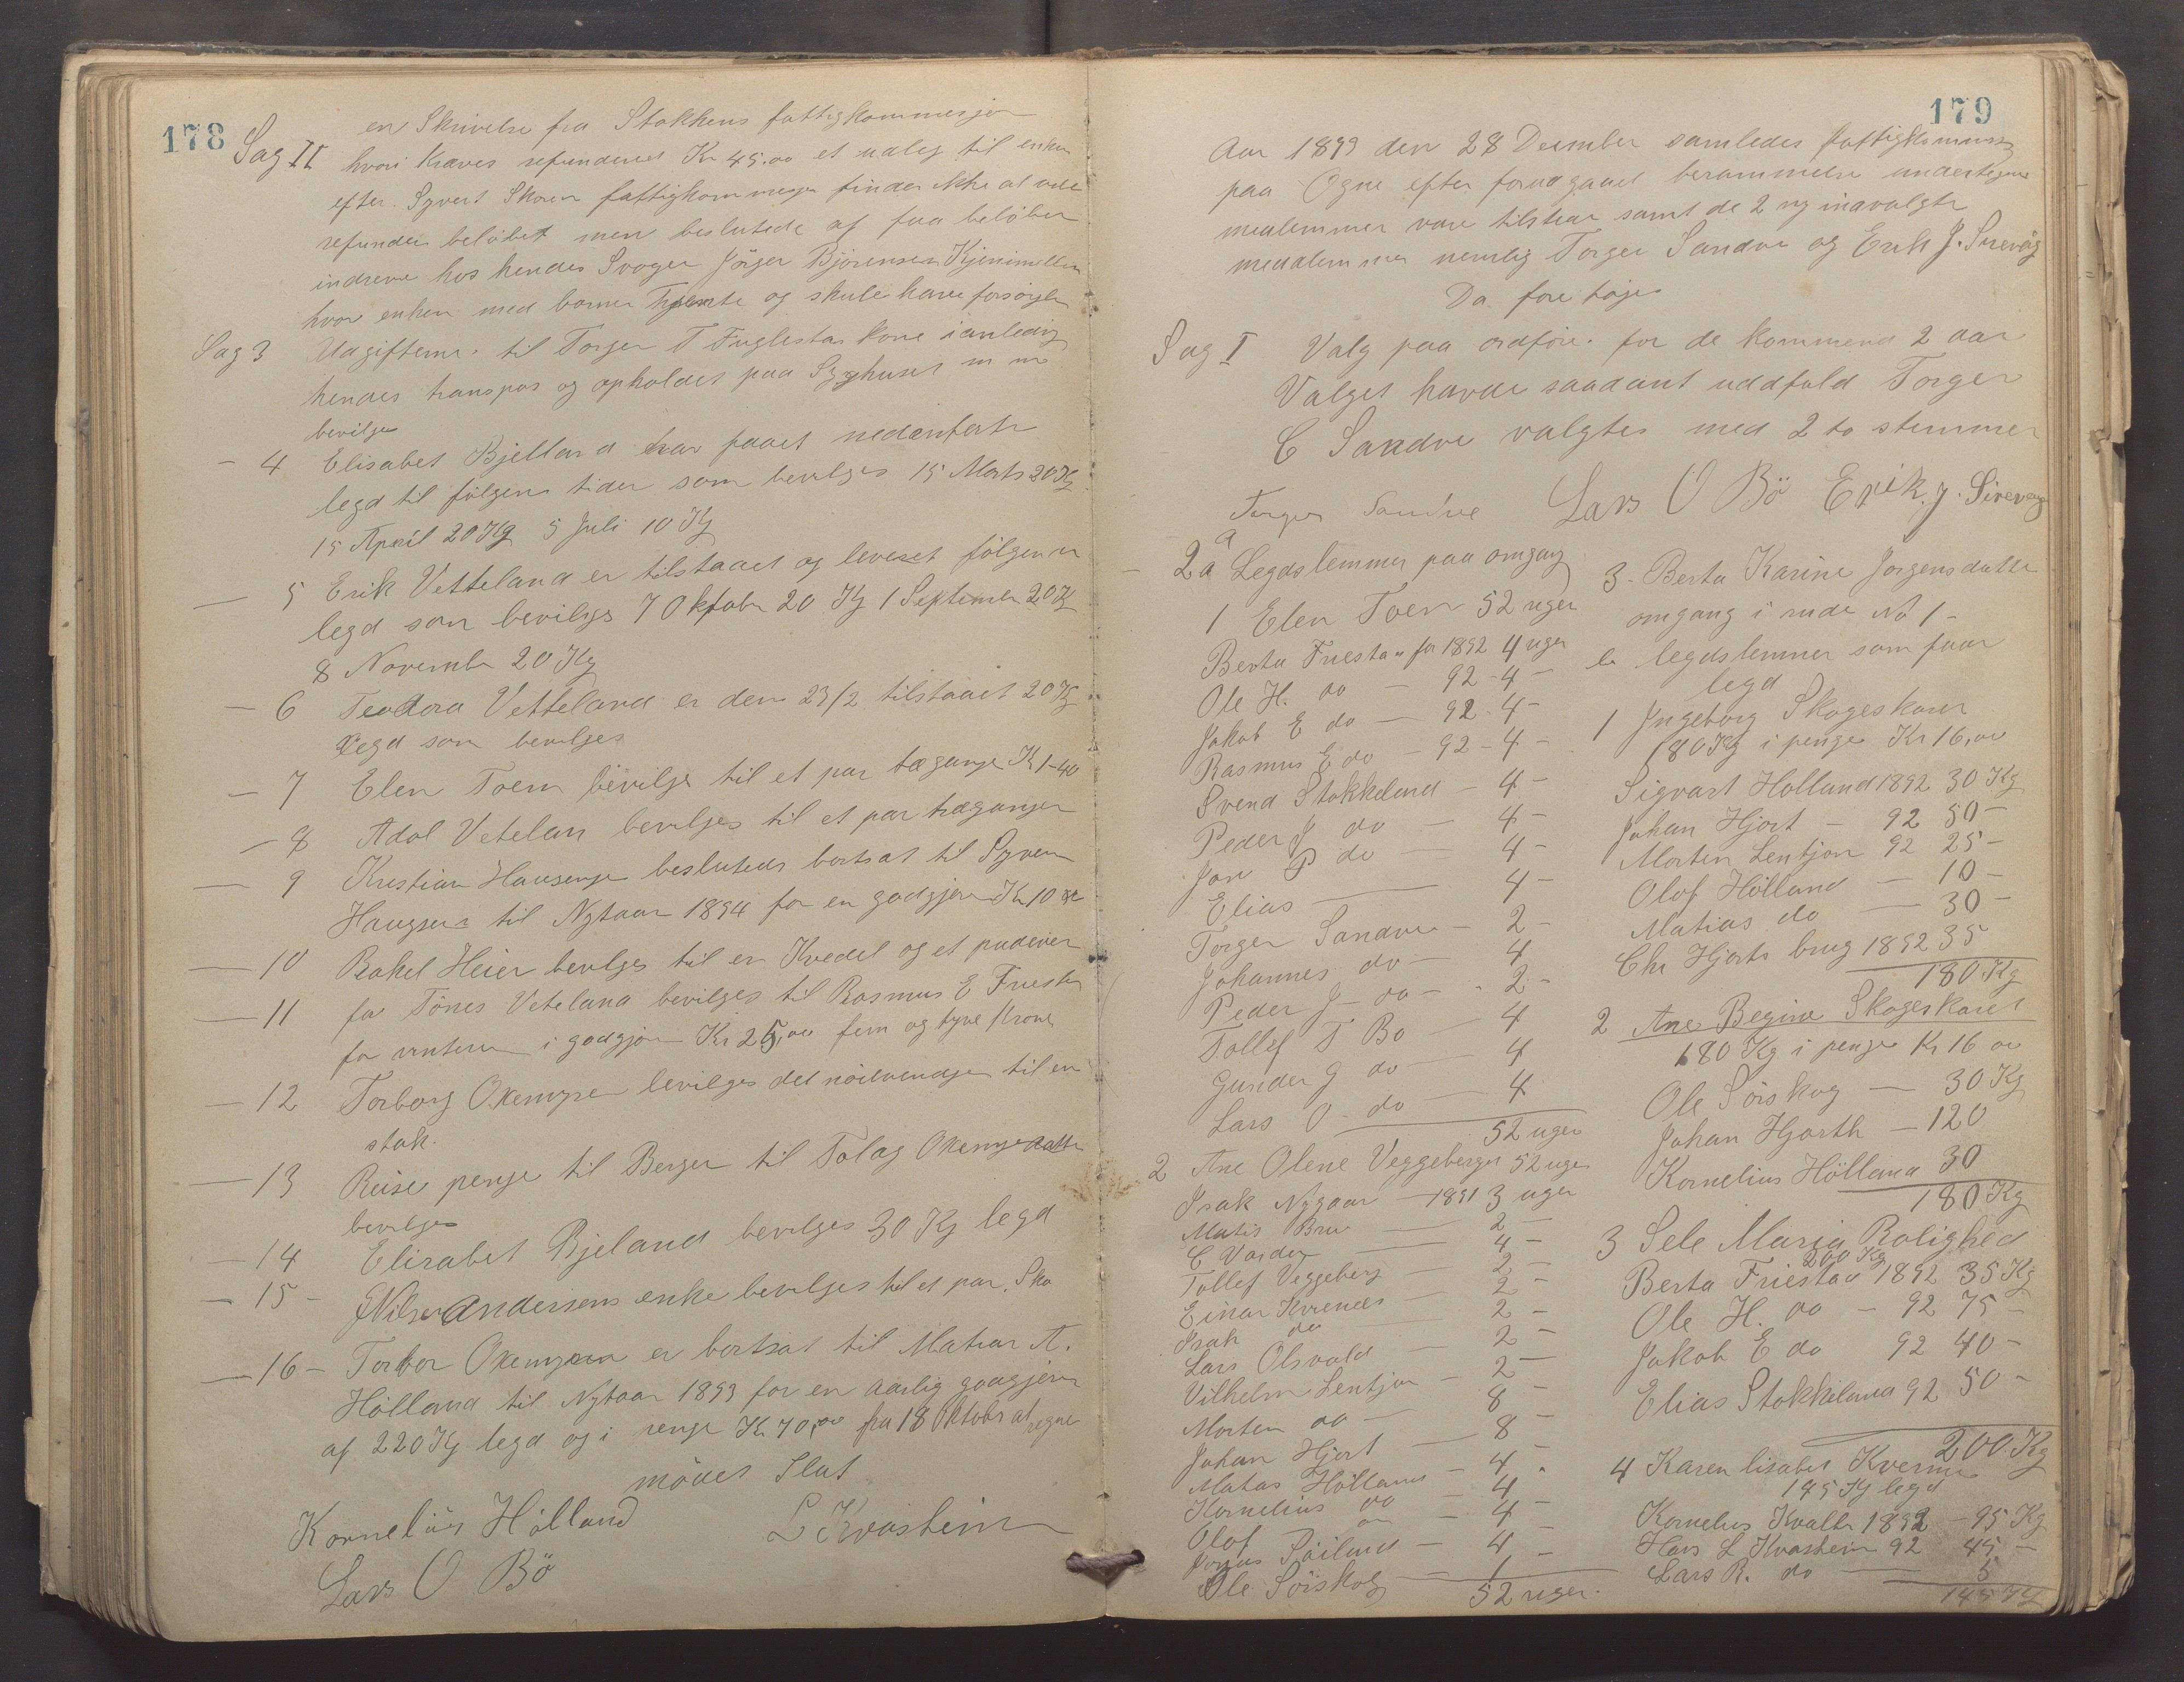 178
Sag II en Skrivelse fra Stokkens fattigkommesjon
hvori kraves refunderet Kr 45.00 et udleg til enken
efter Syvert Skoren fattigkommesjon finder ikke at ville
refunder beløbet men besluttede af faa beløbet
indreve hos hendes Svoger Jörger Bjørensen
hvor enken med børnen tjente og skule have forsörgelse
Sag 3 Udgifterne til Torger T Fuglestas kone ianledig
hendes transpor og opholdet paa Sygehuset m m
bevilges
- 4 Elisabet Bjelland har faaet nedanførte
legd til følgene tider som bevilges 15 Marts 20 Kg
15 April 20 Kg 5 Juli 10 Kg
- 5 Erik Vetteland er tilstaaet og leveret fölgende
legd som bevilges 7 Oktober 20 Kg 1 September 20 Kg
8 November 20 Kg
- 6 Teodora Vetteland er den 23/2 tilstaaet 20 Kg
Legd som bevilges
- 7 Elen Toen bevilges til et par trægange Kr 1-40
- 8 Adol Vetelan bevilges til et par træganger
- 9 Kristian Haugsenge besluttedes bortsat til Syven
Haugsen til Nytaar 1894 for en godgjøre Kr 10 00
- 10 Rakel Heier bevilges til en Kvedel og et pudevær
- 11 for Tönes Veteland bevilges til Rasmus E Friestad
for vinteren i godgjøre Kr 25,00 fem og tyve Krone
- 12 Torborg Okemyren bevilges det nödvendige til en
stak.
- 13 Reise penge til Bergen til Tolag Okemyr datter
bevilges
- 14 Elisabet Bjeland bevilges 30 Kg legd
- 15 - Nilse Andersens enke bevilges til et par Sko
- 16 - Torbor Okemyren er bortsat til Matias A.
Hölland til Nytaar 1893 for en aarlig godgjøre
af 220 Kg legd og i penge Kr 70,00 fra 18 Oktober at regne
mödet Slut
Kornelius Hölland L Kvastein
Lars O Bö
179
Aar 1893 den 28 Desember samledes fattigkommesjon
paa Ogne efter forudgaaet berammelse undertegnede
medlemmer vare tilstear samt de 2 ny inavalgte
meddlemmer nemlig Torger Sandve og Erik J. Sirevåg
Da foretoges
Sag I Valg paa ordføre for de kommend 2 aar
Valget havde saadant uddfald Torger
C Sandve valgtes med 2 to stemmer
Torger Sandve Lars O Bö Erik. J. Sirevåg
- 2 a Legdslemmer paa omgang
1 Elen Toen 52 uger
Berta Friestad for 1892 4 uger
Ole H. do - 92 - 4 -
Jakob E do - 92 - 4 -
Rasmus E do - 92 - 4 -
Svend Stokkeland - 4 -
Peder J do - 4 -
Jon P do - 4 -
Elias - 4 -
Torger Sandve - 2 -
Johannes do - 4
Peder J do - 2 -
Tollef T Bo 4
Gunder G do 4
Lars O do 4
52 uger
2 Ane Olene Veggeberget 52 uger
Isak Nygaar - 1891 3 uger
Matis Bru 2 -
C Varden 4 -
Tollef Veggeberg - 2 -
Einar Kvenes - 2 -
Isak do 2 -
Lars Olsvold - 2 -
Vilhelm Lentjon - 2 -
Morten do - 8 -
Johan Hjort - 8
Matias Hölland - 4 -
Kornelius do - 4
Olof do - 4 -
Jonas Röiland - 4 -
Ole Söiskog - 1
52 uger.
3. Berta Karine Jörgensdatter
omgang i rude No 1 -
b legdslemmer som faar
legd
1 Ingeborg Skogeskaret
180 Kg i penge Kr 16,00
Sigvart Holland 1892 30 Kg
Johan Hjort - 92 50 -
Morten Lentjon 92 25 -
Olof Hölland - 10 -
Matias do - 30 -
Chr Hjorts brug 1892 35
180 Kg
2 Ane Begine Skogeskaret
180 Kg i penge Kr 16 00
Ole Söiskog - 30 Kg
Johan Hjorth - 120
Kornelius Hölland 30
180 Kg
3 Sele Maria Rolighed
200 Kg
Berta Friestad 1892 35 Kg
Ole H. do - 92 75 -
Jakob E do 92 40 -
Elias Stokkeland 92 50 -
200 Kg
4 Karen lisabet Kvernes
145 Kg legd
Kornelius Kvalbe 1892 - 95 Kg
Hans L Kvastein 92 45 -
Lars R. do 5
145 Kg